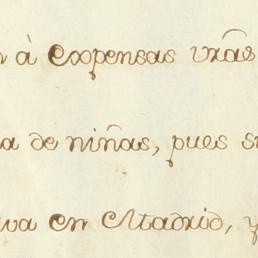 à expensas vrãs
a de niñas, pues s
va en Madrid, y